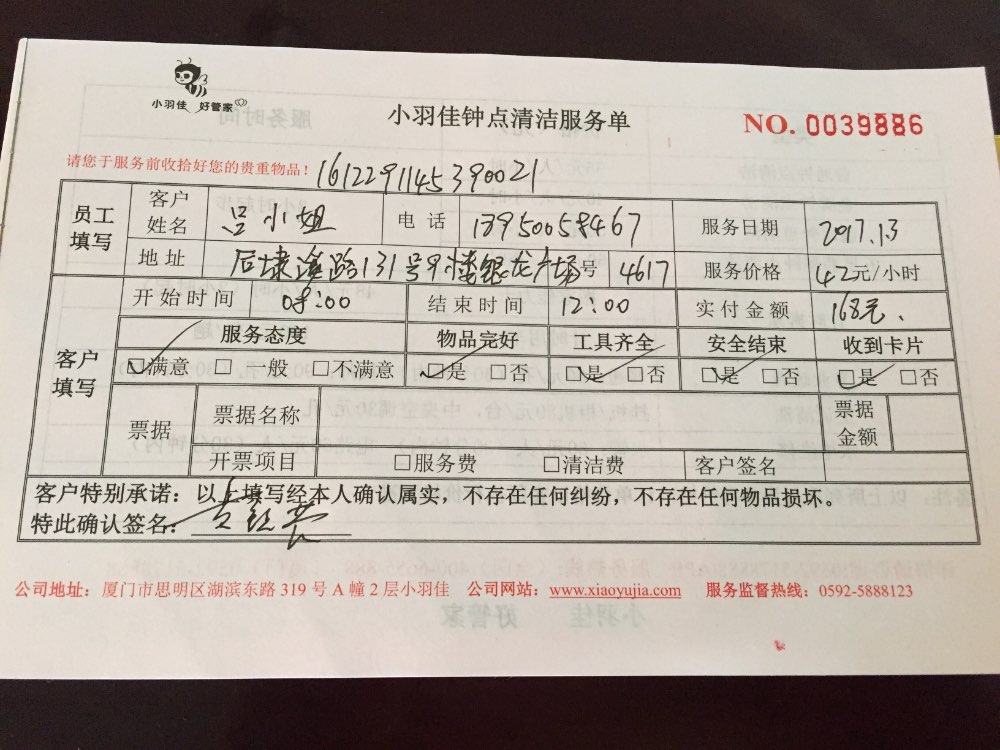 小羽佳 好管家
小羽佳钟点清洁服务单
NO. 0039886
请您于服务前收拾好您的贵重物品！ 1612291145390021
员工填写 客户姓名 吕小姐 电话 13950058467 服务日期 2017.1.3
地址 后埭溪路131号9楼银龙广场号 4617 服务价格 42元/小时
开始时间 08:00 结束时间 12:00 实付金额 168元.
客户填写 服务态度 物品完好 工具齐全 安全结束 收到卡片
☑满意 □一般 □不满意 ☑是 □否 ☑是 □否 ☑是 □否 ☑是 □否
票据 票据名称 票据金额
开票项目 □服务费 □清洁费 客户签名
客户特别承诺：以上填写经本人确认属实，不存在任何纠纷，不存在任何物品损坏。
特此确认签名：
公司地址：厦门市思明区湖滨东路 319 号 A 幢 2 层小羽佳 公司网站：www.xiaoyujia.com 服务监督热线：0592-5888123